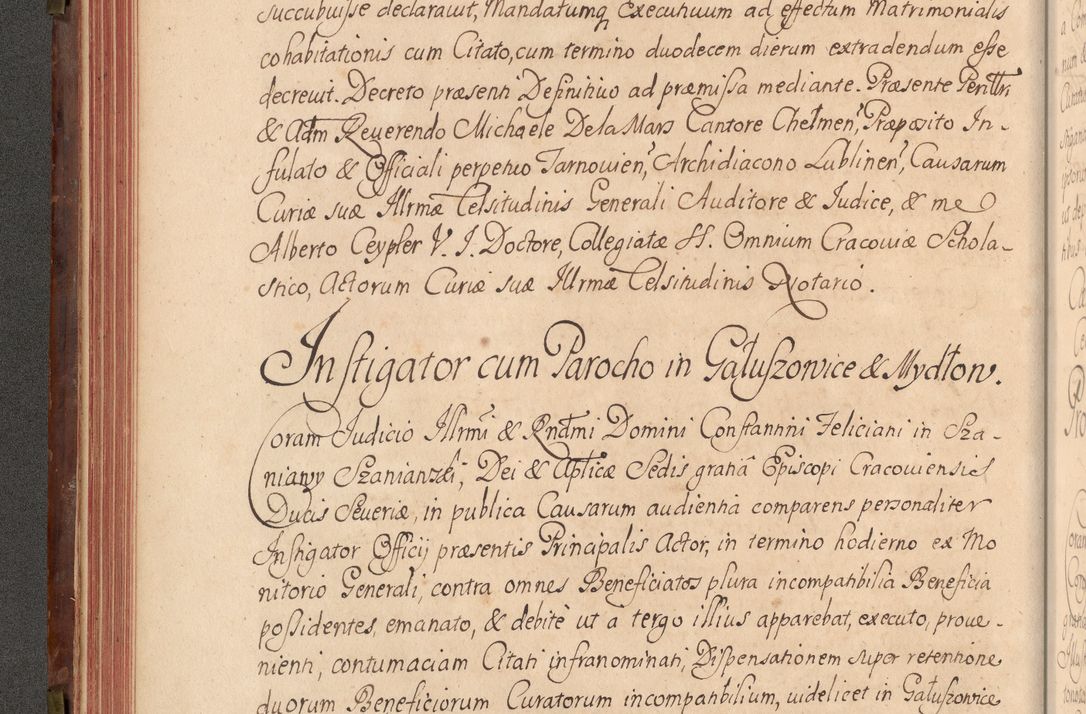 succubuisse declaravit, Mandatumq Executivum ad effectum Matrimonialis
cohabitationis cum Citato, cum termino duodecem dierum extradendum esse
decrevit. Decreto præsenti Definitivo ad præmissa mediante. Præsente Perillri
& Adm Reverendo Michaele De la Mars Cantore Chelmen, Præposito In-
fulato & Officiali perpetuo Tarnovien, Archidiacono Lublinen, Causarum
Curiæ suæ Illrmæ Celsitudinis Generali Auditore & Iudice, & me
Alberto Ceypler V. I. Doctore, Collegiatæ SS. Omnium Cracoviæ Schola-
stico, Actorum Curiæ suæ Illrmæ Celsitudinis Notario.
Instigator cum Parocho in Gałuszowice & Mydłow.
Coram Iudicio Illrmi & Rndmi Domini Constantini Feliciani in Sza-
niawy Szaniawski, Dei & Aplicæ Sedis gratia Episcopi Cracoviensis
Ducis Severiæ, in publica Causarum audientia comparens personaliter
Instigator Officij præsentis Principalis Actor, in termino hodierno ex Mo
nitorio Generali, contra omnes Beneficiatos plura incompatibilia Beneficia
possidentes, emanato, & debite ut a tergo illius apparebat, executo, prove-
nienti, contumaciam Citati infranominati, Dispensationem super retentione
duorum Beneficiorum Curatorum incompatibilium, videlicet in Gałuszowice